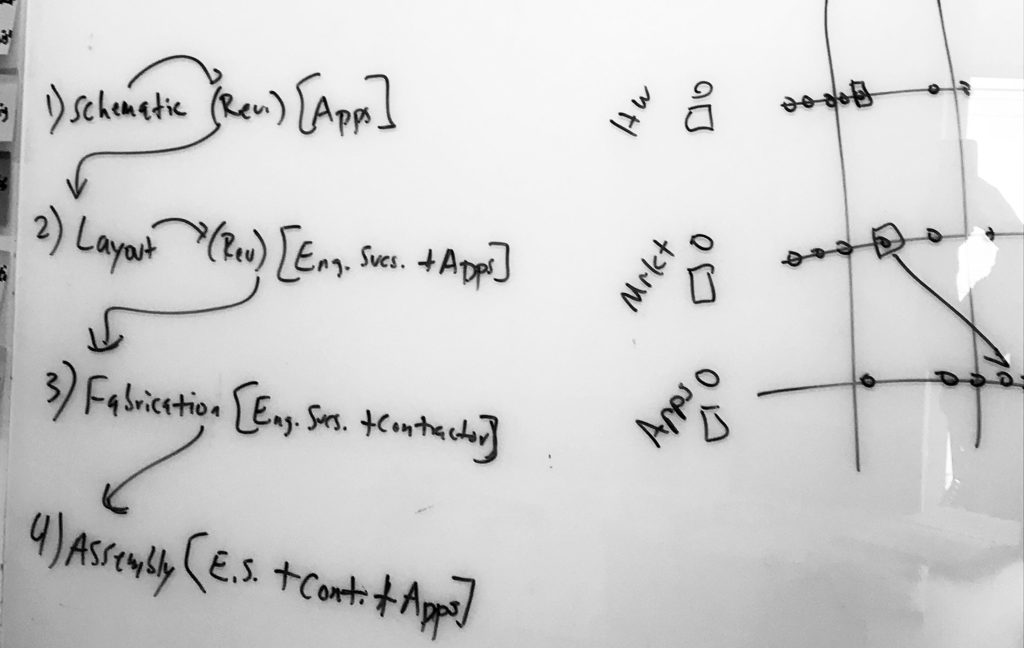 1) Schematic (Rev.) [Apps]
2) Layout (Rev) [Eng. Svcs. + Apps]
3) Fabrication [Eng. Svcs. + Contractor]
4) Assembly [E.S. + Cont. + Apps]
HW
Mrkt
Apps